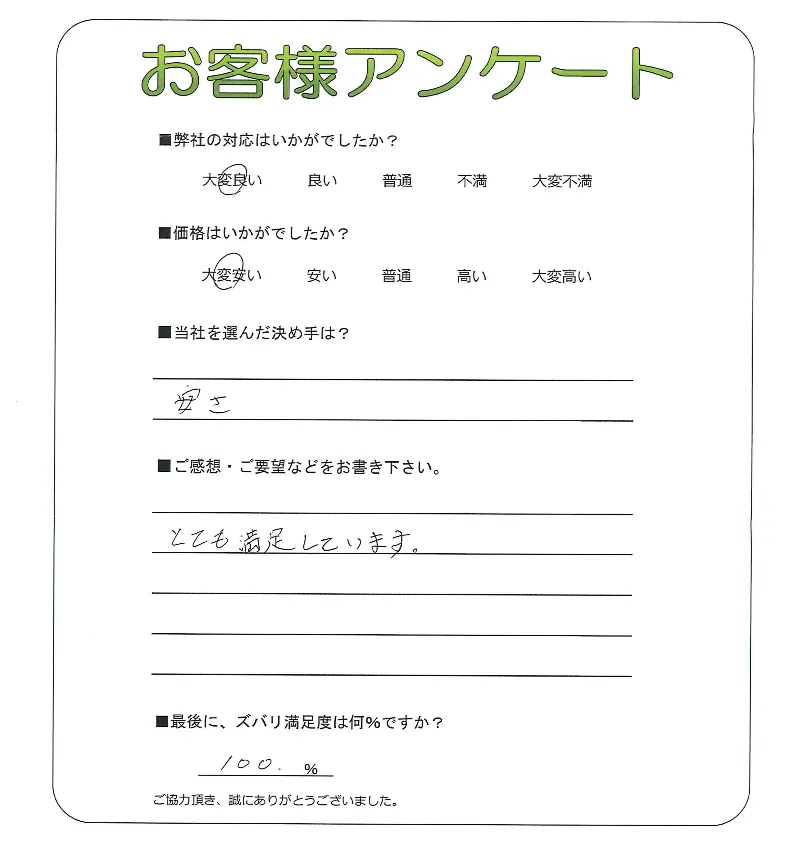 お客様アンケート
■弊社の対応はいかがでしたか？
大変良い 良い 普通 不満 大変不満
■価格はいかがでしたか？
大変安い 安い 普通 高い 大変高い
■当社を選んだ決め手は？
安さ
■ご感想・ご要望などをお書き下さい。
とても満足しています。
■最後に、ズバリ満足度は何%ですか？
100. %
ご協力頂き、誠にありがとうございました。